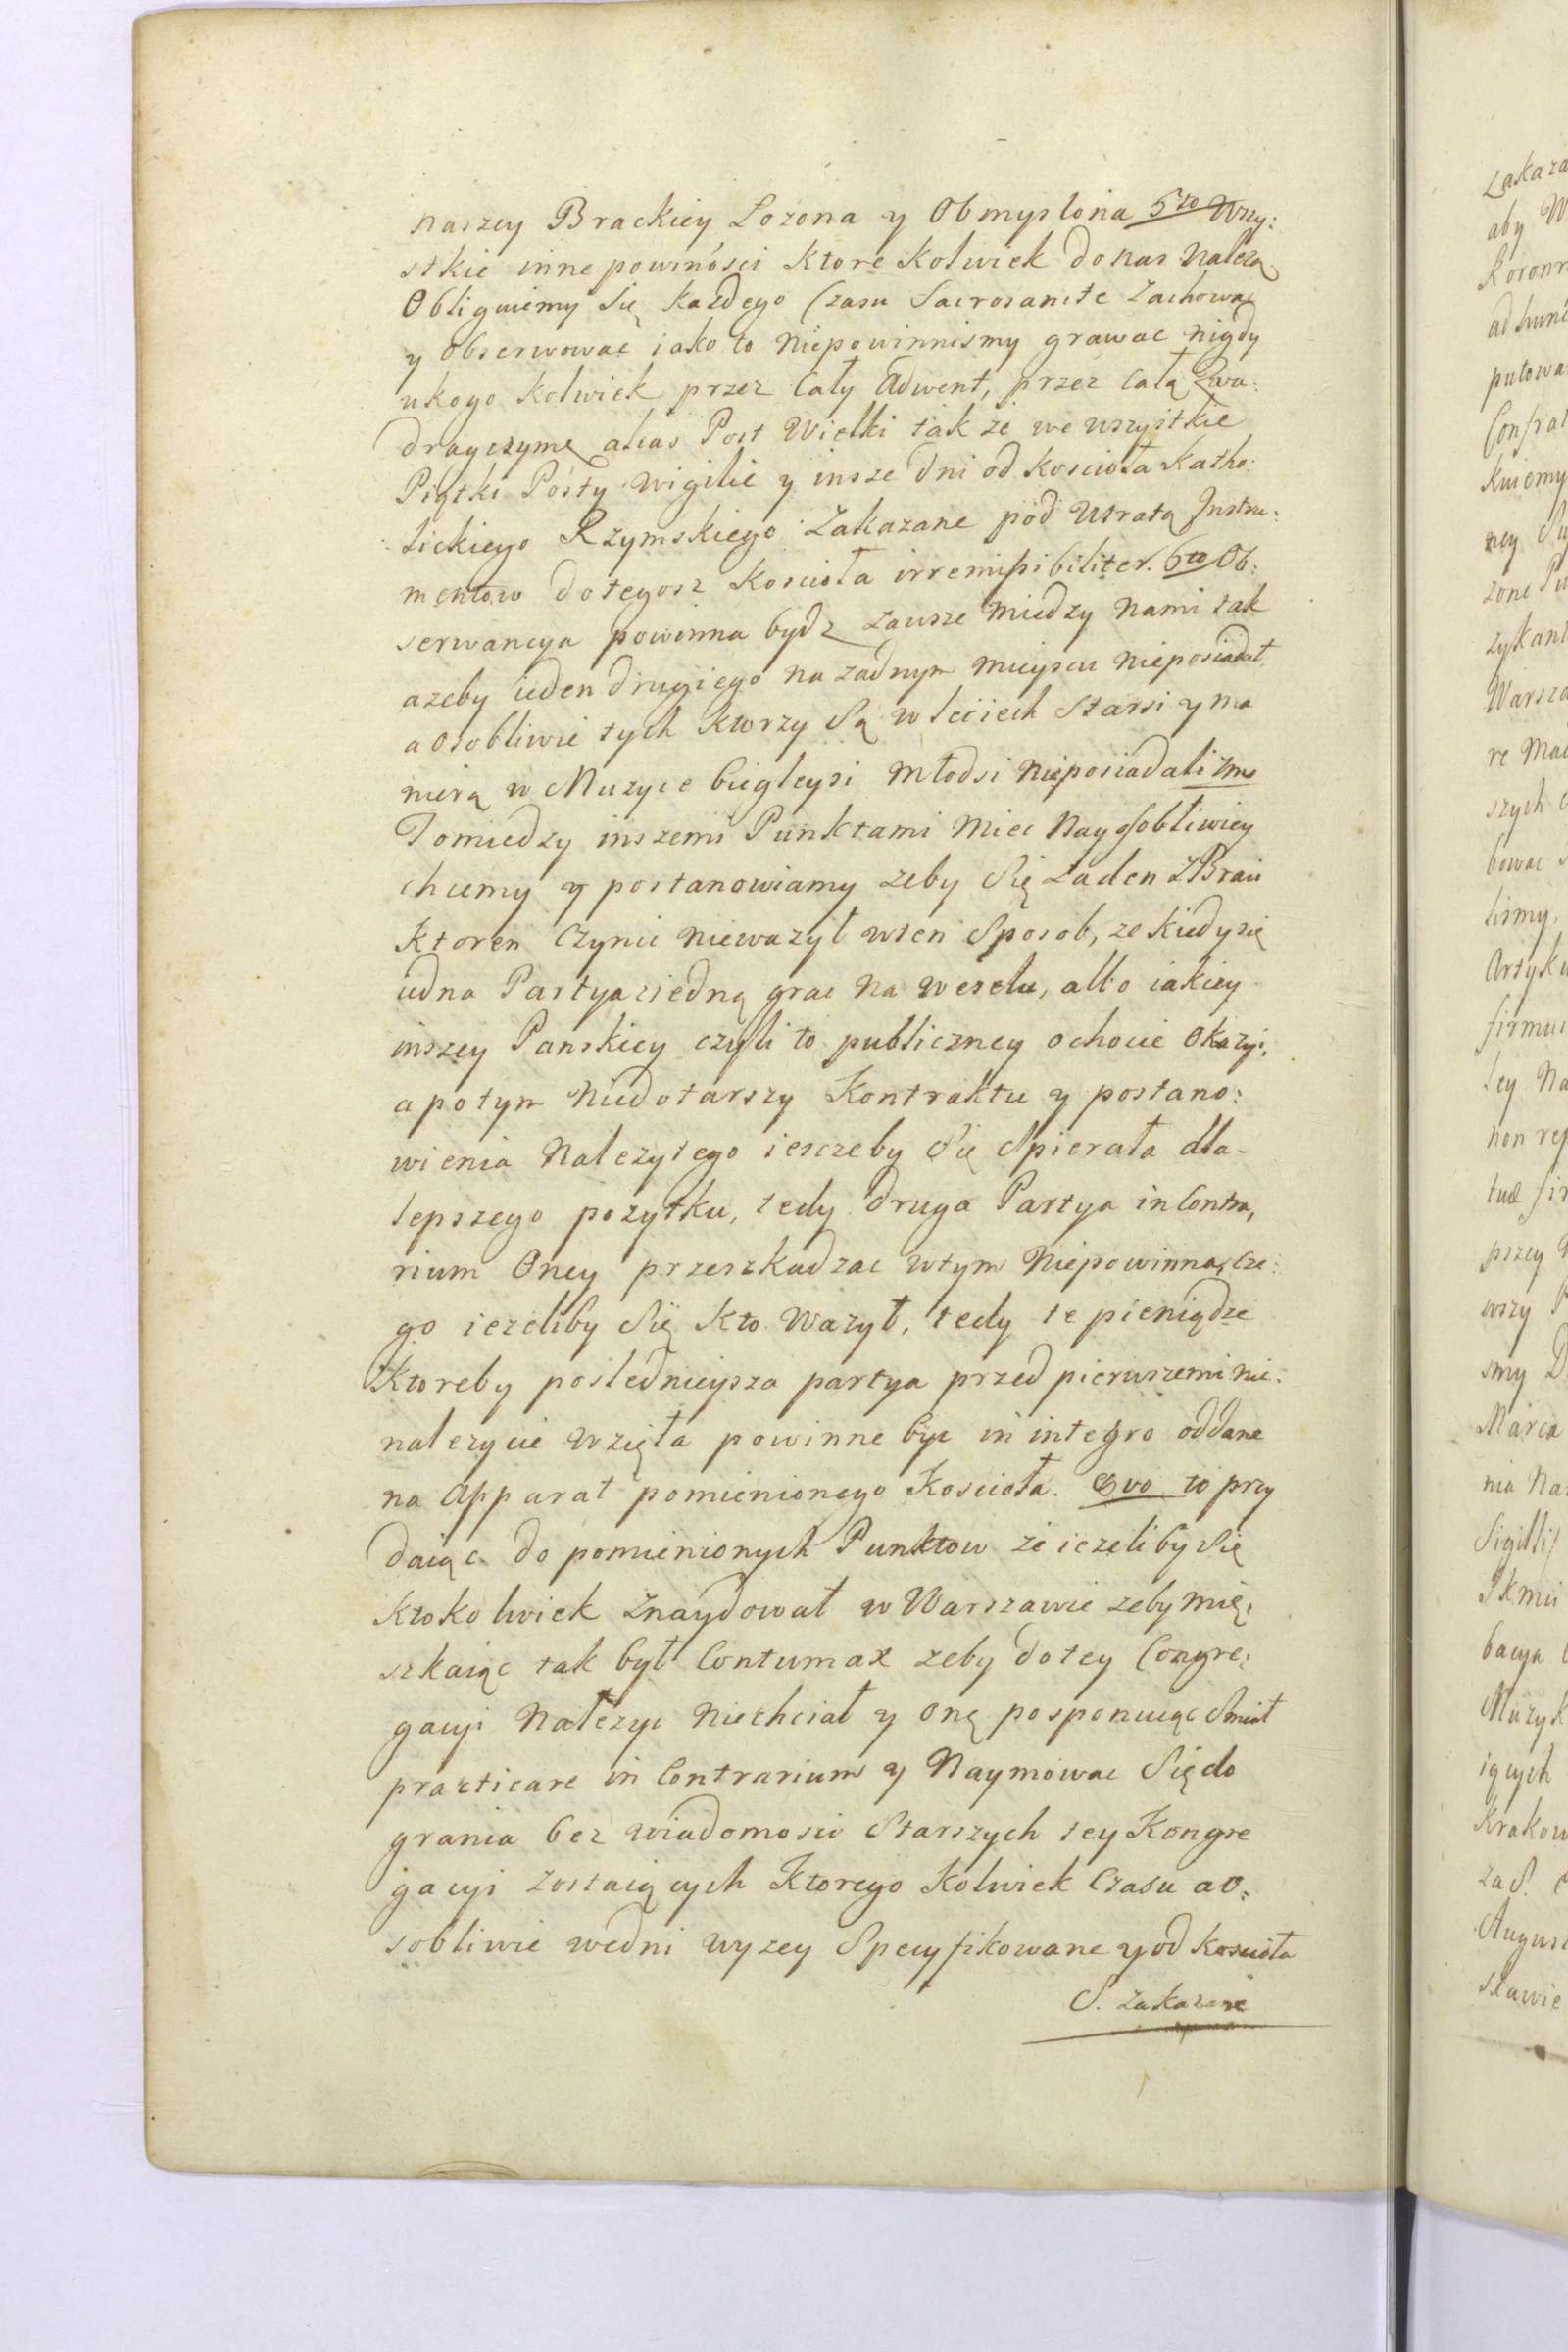 naszey Brackiey Łozona y Obmyslona 5to Wszy:
stkie inne powinosci ktore kolwiek do nas Naleza
Obliguiemy Się Kazdego Czasu Sacrosancte Zachowac
y Obserwowac iako to Niepowinnismy grawac nigdy
ukogo kolwiek przez Cały Adwent, przez całą Qwa:
dragezymę alias Post Wielki tak ze we wszystkie
Piątki Posty wigilie y insze Dni od Koscioła Katho:
lickiego Rzymskiego Zakazane pod Utratą Instru:
mentow do tegosz Koscioła irremissibiliter. 6to Ob:
serwancya powinna bydz zawsze między Nami tak
azeby ieden drugiego na zadnym mieyscu nieposiadał
a osobliwie tych ktorzy Są w leciech Starsi y ma
nierą w Muzyce biegleysi Młodsi nieposiadali 7mo
To miedzy inszemi Punktami Miec Nayosobliwiey
chcemy y postanowiamy zeby Się zaden z Braci
Ktoren Czynic niewazył wten Sposob, ze kiedy się
iedna Partya ziedną grac na weselu, albo iakiey
inszey Panskiey czyli to publiczney ochocie Okazyi,
a potym Niedotarszy Kontraktu y postano:
wienia Nalezytego iesczeby Się Spierała dla
lepszego pozytku, tedy druga Partya in Contra,
rium Oney przeszkadzac wtym Niepowinna, cze:
go iezeliby Się kto wazył, tedy te pieniądze
Ktoreby poslednieysza partya przed pierwszemi nie:
nalezycie wzięła powinne byc in integro oddane
na Apparat pomienionego Koscioła. 8vo to przy
daiąc do pomienionych Punktow ze iezeliby Się
Ktokolwiek Znaydował w Warszawie zeby mię,
szkaiąc tak był Contumax zeby do tey Congre:
gacyi Nalezyc Niechciał y onę posponuiąc Smiał
practicare in Contrarium y Naymowac Się do
grania bez wiadomosci Starszych tey Kongre
gacyi zostaiących Ktorego Kolwiek Czasu a o:
sobliwie wedni wyzey Specyfikowane y od Koscioła
S. zakazane
Zakaza
aby W
ad hunc
putowa
Confrat
Warsza
szych
lismy,
firmu
ley Na
non rep
pszey
wszy
smy D
nia Na
Muzyk
iących
Krakow
August
sławie